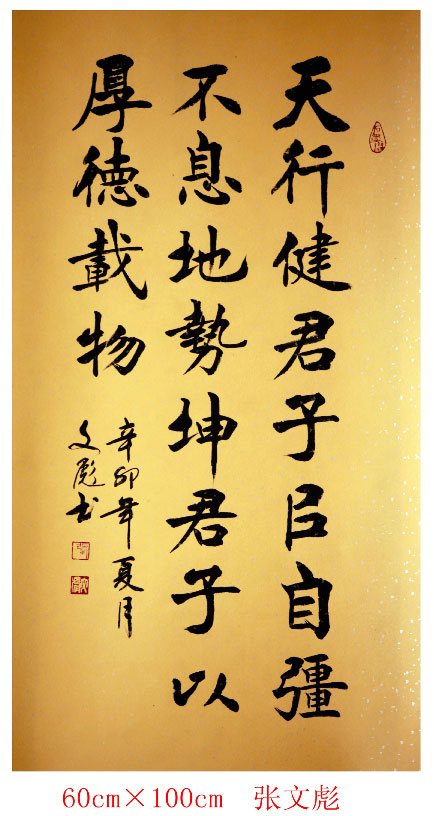 天行健君子㠯自彊
不息地勢坤君子以
厚德載物
辛卯年夏月
文彪书
60cm×100cm 张文彪